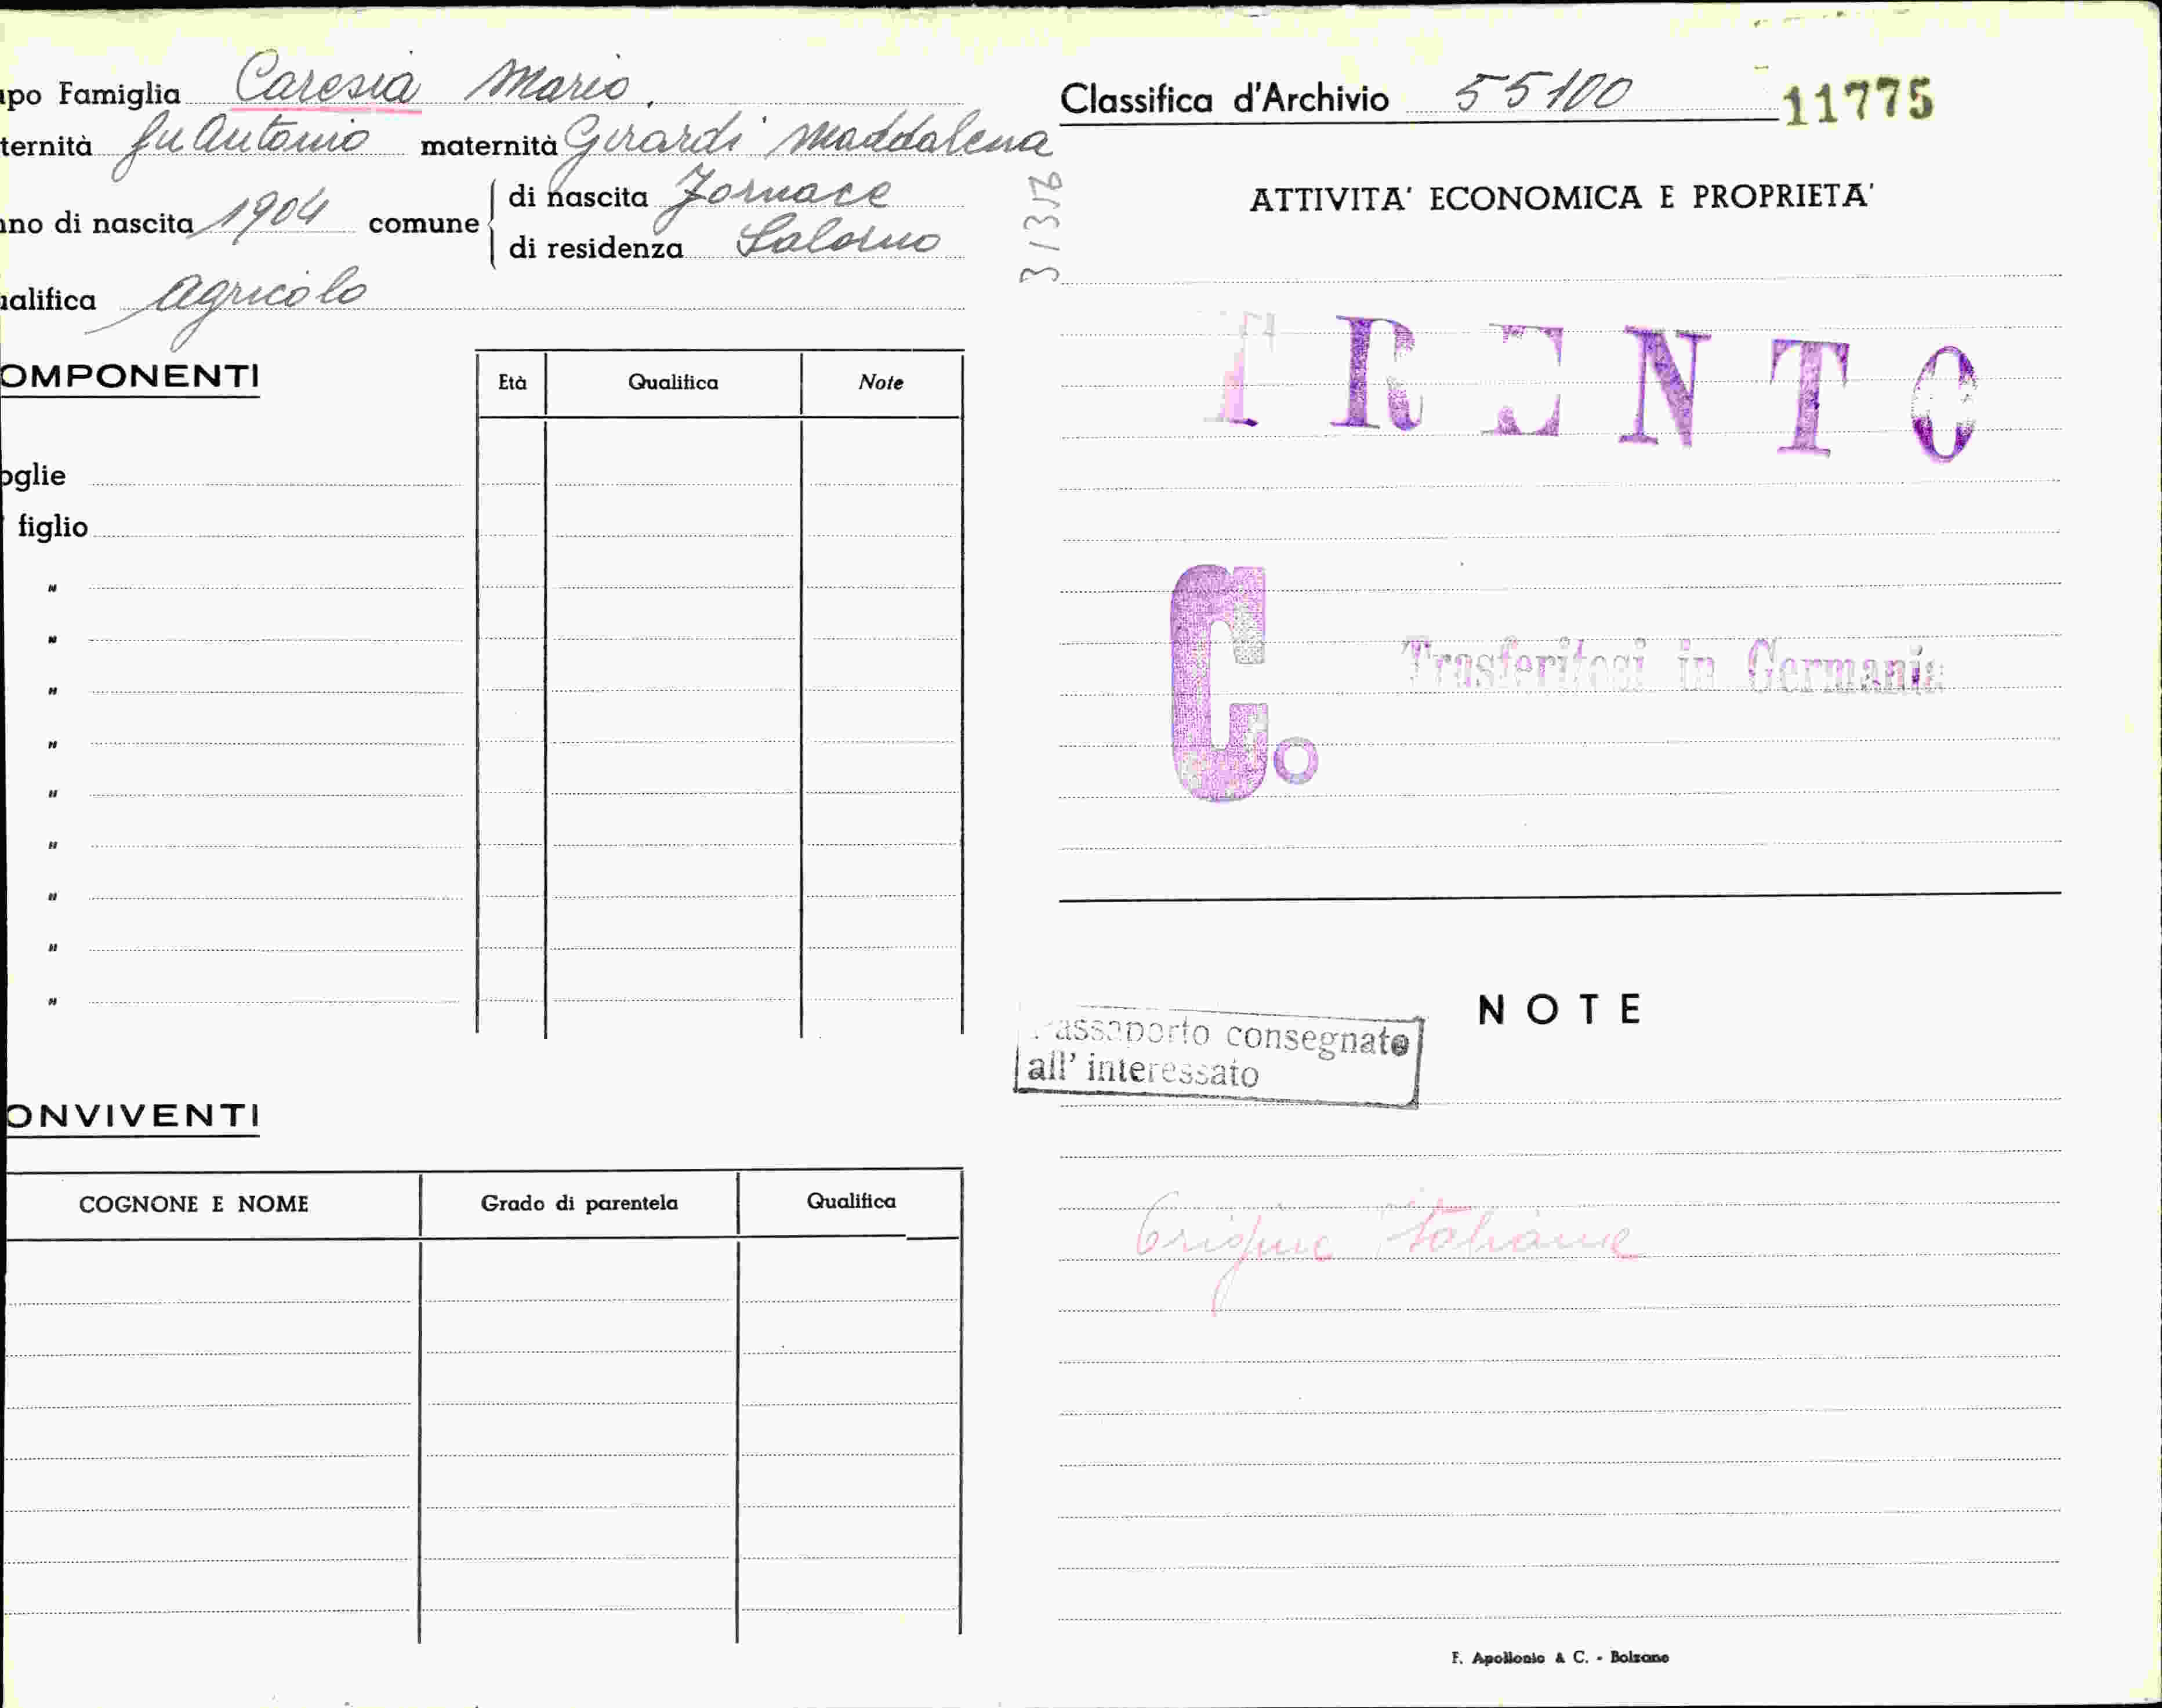 apo Famiglia Caresia Mario
ternità fu Antonio maternità Girardi Maddalena
nno di nascita 1904 comune di nascita Fornace
di residenza Salorno
ualifica agricolo
OMPONENTI
Età Qualifica Note
oglie
figlio
"
"
"
"
"
"
"
"
"
ONVIVENTI
COGNONE E NOME Grado di parentela Qualifica
Classifica d'Archivio 55100 11775
ATTIVITA' ECONOMICA E PROPRIETA'
TRENTO
C.
Trasferitosi in Germania
NOTE
Passaporto consegnato
all' interessato
Origine italiana
F. Apollonio & C. - Bolzano